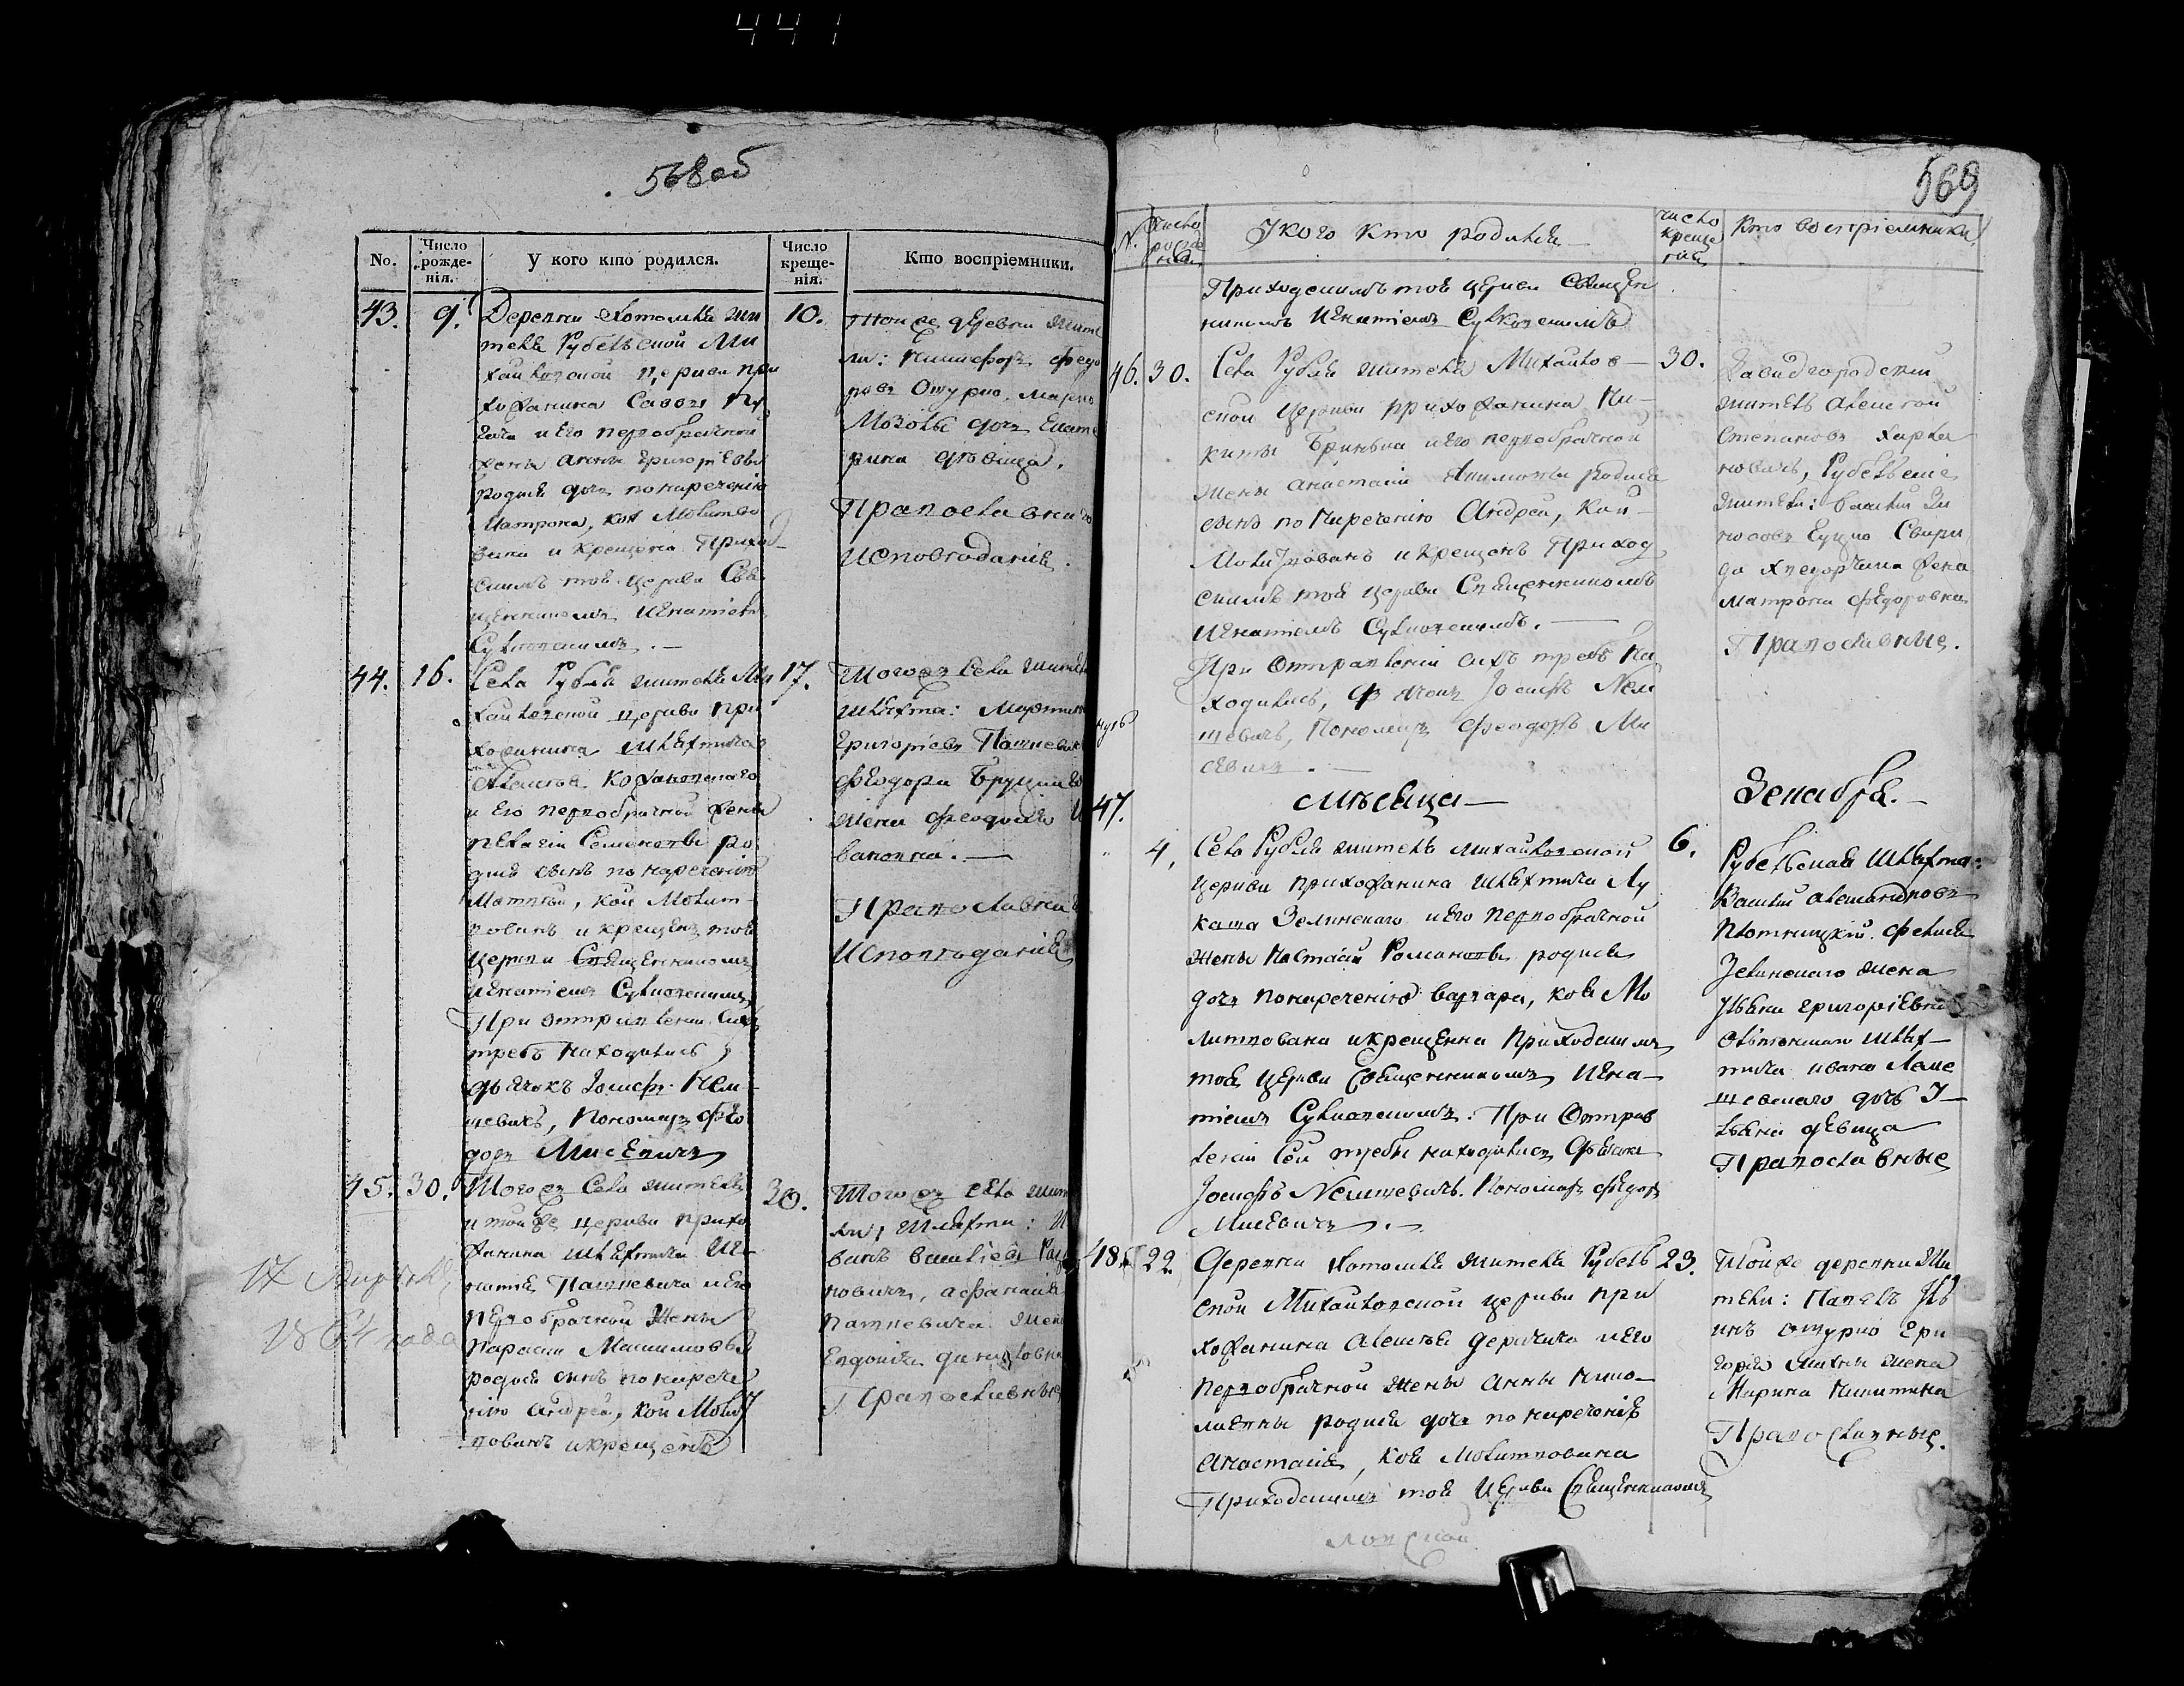 441
568об
No.
Число рожде-нія.
У кого кто родился.
Число креще-нія.
Кто воспріемники.
43.
9.
Деревни Хотомля жи
теля Рубельской Ми
хайловской церкви при
хожанина Саввы
и его первобрачной
жены Анны Григоріевы
родися дочь по нареченію
Матрона, коя Молитво
вана и крещена Приход
скимъ тоя церкви Свя
щенникомъ Игнатіемъ
Сулковскимъ. —
10.
Тойже деревни жите
ли: Никифоръ Федо
ровъ Ошурко,
дочь Екате
рина девица.
Православнаго
исповеданія.
44.
16.
Села Рубля жителя Ми
хайловской церкви при
хожанина Шляхтича
Кожановскаго
и его первобрачной жены
Пелагіи Семеновы ро
дися сынъ по нареченію
Матвей, кой Молит-
вованъ и крещенъ тоя
церкви Священникомъ
Игнатіемъ Сулковскимъ
При отправленіи сихъ
требъ находились
дьячокъ Іосифъ Нем-
цевичъ, Пономарь Фео
доръ Мисевичъ
17.
Тогожъ села жители
Шляхта: Мартинъ
Григоріевъ Пашкевичъ
Феодора
жена Феодосія И
вановна. —
Православнаго
Исповеданія
45.
30.
Тогожъ села жителя
и тойже церкви прихо
жанина Шляхтича Иг-
натія Пашкевича и его
первобрачной жены
Параски Максимовы
родися сынъ по нарече
нію Андрей, кой Молит
вованъ и крещенъ
30.
Тогожъ села жите
ли, Шляхта: И
ванъ Василіевъ
новичъ, Афанасія
Пашкевича жена
Евдокія Даниловна
Православные
17
1864 года
569
N.
Число рожденія
У кого кто родился
Число крещенія
Кто воспріемники
Приходскимъ тоя церкви Священ
никомъ Игнатіемъ Сулковскимъ
46.
30.
Села Рубля жителя Михайлов-
ской церкви прихожанина Ни-
киты и его первобрачной
жены Анастасіи родися
сынъ по нареченію Андрей, кой-
Молитвованъ и крещенъ Приход
скимъ тоя церкви Священникомъ
Игнатіемъ Сулковскимъ. —
При Отправленіи сихъ требъ на
ходились, Дьячокъ Іосифъ Нем
цевичъ, Пономарь Феодоръ Ми
севичъ. —
30.
Давидгородскій
житель Алексей
Степановъ Харла
новичъ, Рубельскіе
жители: Василій
жена
Матрона Федоровна
Православные.
47.
Месяца —
Декабря. —
4.
Села Рубля жителя Михайловской
церкви прихожанина Шляхтича Лу
каша Зелинскаго и его первобрачной
жены Настасіи Романовы родися
дочь по нареченію Варвара, коя Мо
литвована и крещенна Приходскимъ
тоя церкви Священникомъ Игна-
тіемъ Сулковскимъ. При Отправ
леніи сей требы находились Дьячокъ
Іосифъ Немцевичъ. Пономарь Федоръ
Мисевичъ. —
6.
Рубельская Шляхта:
Василій Александровъ
Плотницкій.
Зелинскаго жена
Ульяна Григоріевна
Шлях-
тича Ивана
дочь У-
льяна девица
Православные
48.
22.
Деревни Хотомля жителя Рубель
ской Михайловской церкви при
хожанина Алексея и его
первобрачной жены Анны Нико-
лаевны родися дочь по нареченію
Анастасія, коя Молитвована
Приходскимъ тоя церкви Священникомъ
23.
Тойже деревни жи
тели: Павелъ Иль
инъ Ошурко Гри
горія жена
Марина Никитина
Православные.